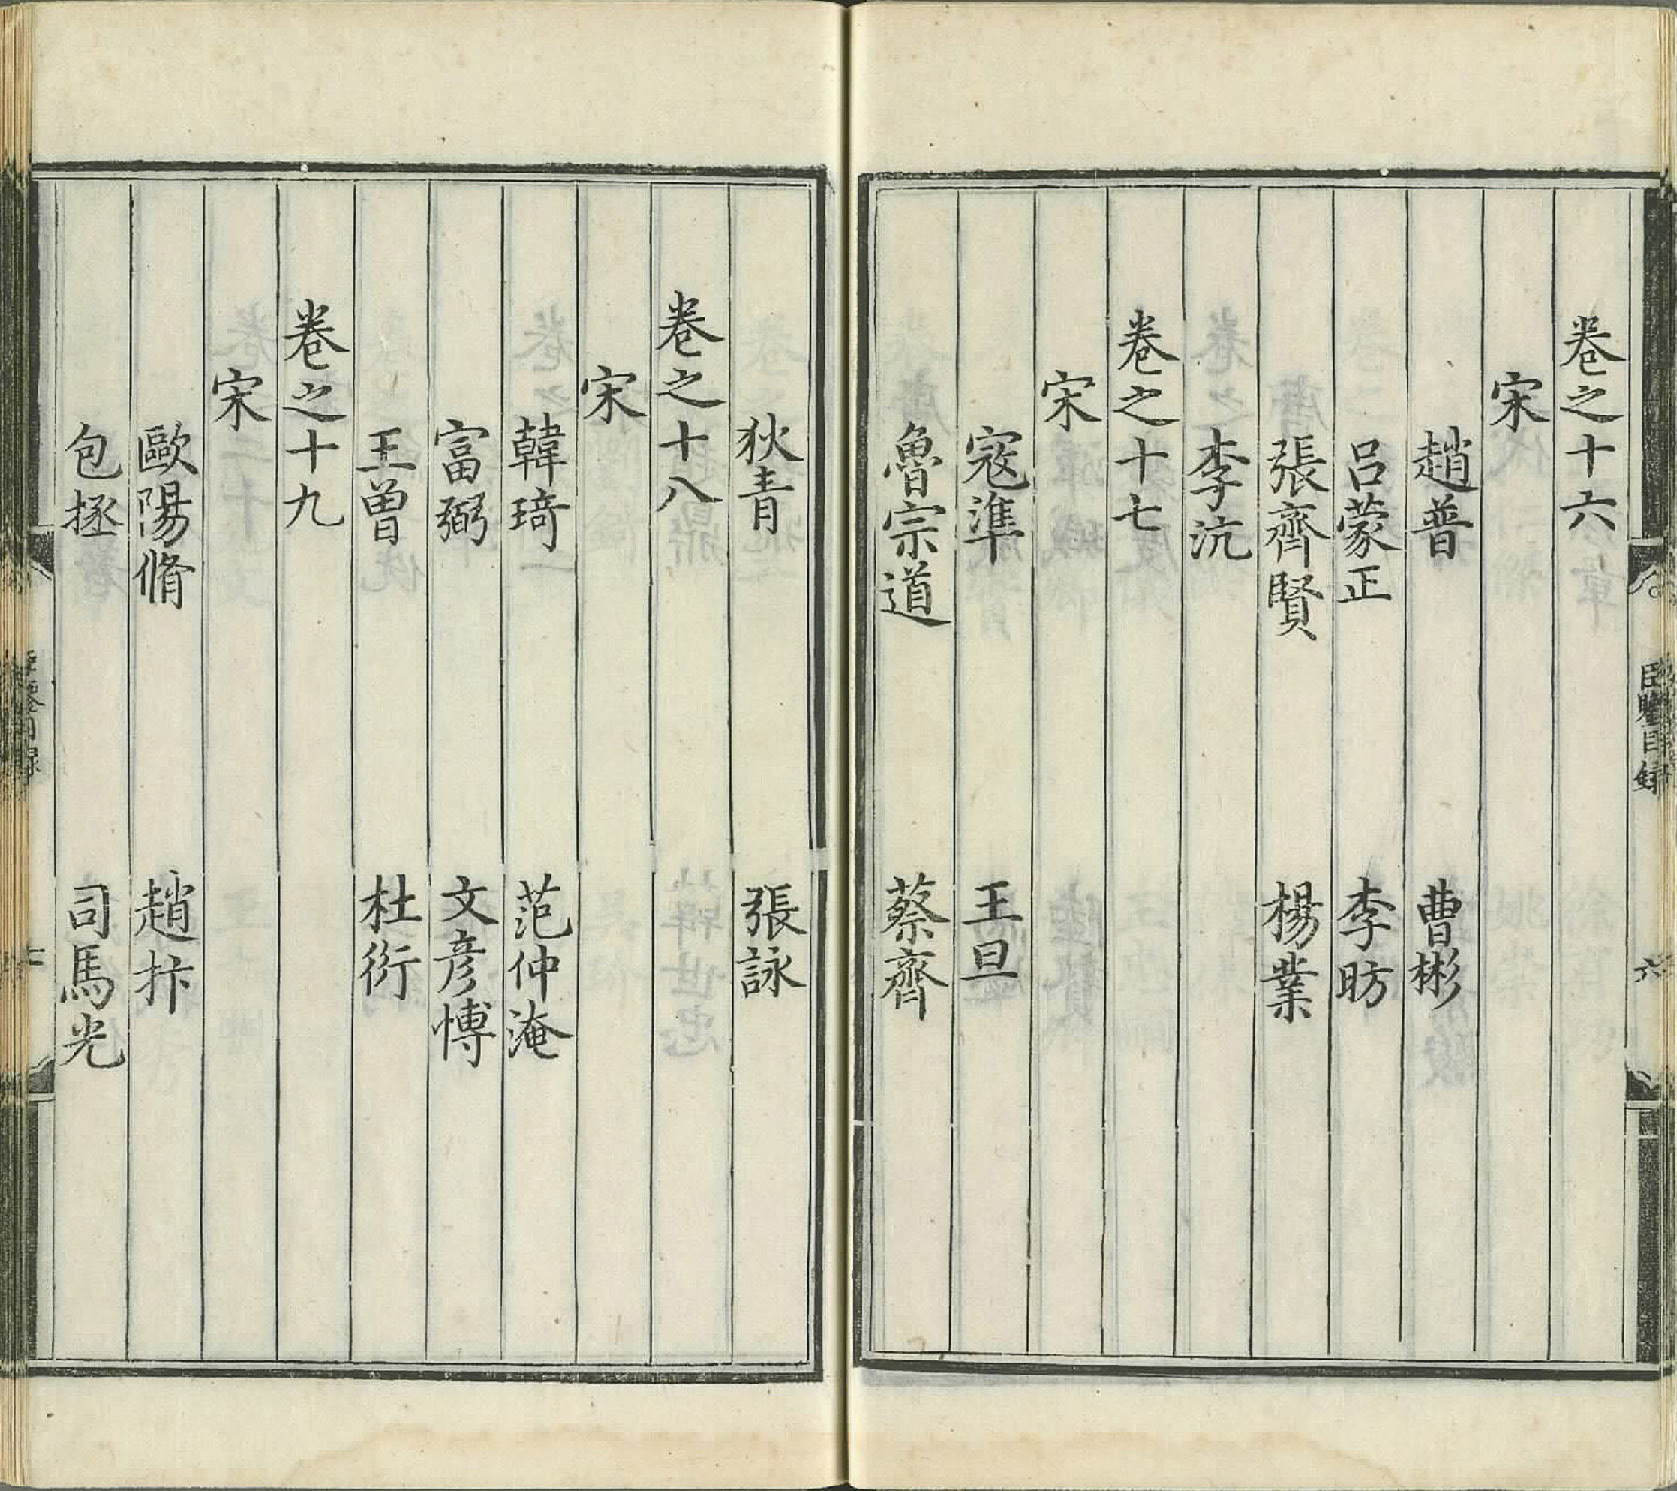 卷之十六
宋
趙普 曹彬
呂蒙正 李昉
張齊賢 楊業
李沆
卷之十七
宋
寇準 王旦
魯宗道 蔡齊
狄青 張詠
卷之十八
宋
韓琦 范仲淹
富弼 文彥博
王曾 杜衍
卷之十九
宋
歐陽脩 趙抃
包拯 司馬光
臣鑒目錄
六